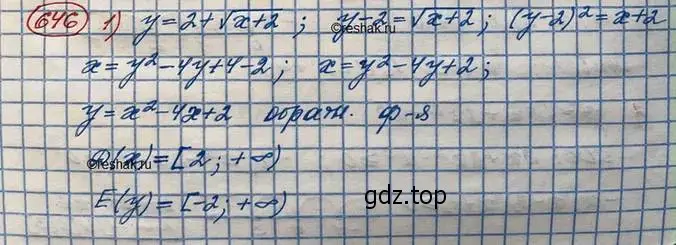 646 1) y = 2 + √x+2 ; y-2 = √x+2 ; (y-2)² = x+2
x = y² - 4y + 4 - 2 ; x = y² - 4y + 2 ;
y = x² - 4x + 2 обратн. ф-я
D(x) = [2 ; +∞)
E(y) = [-2 ; +∞)
©reshak.ru
©reshak.ru
gdz.top